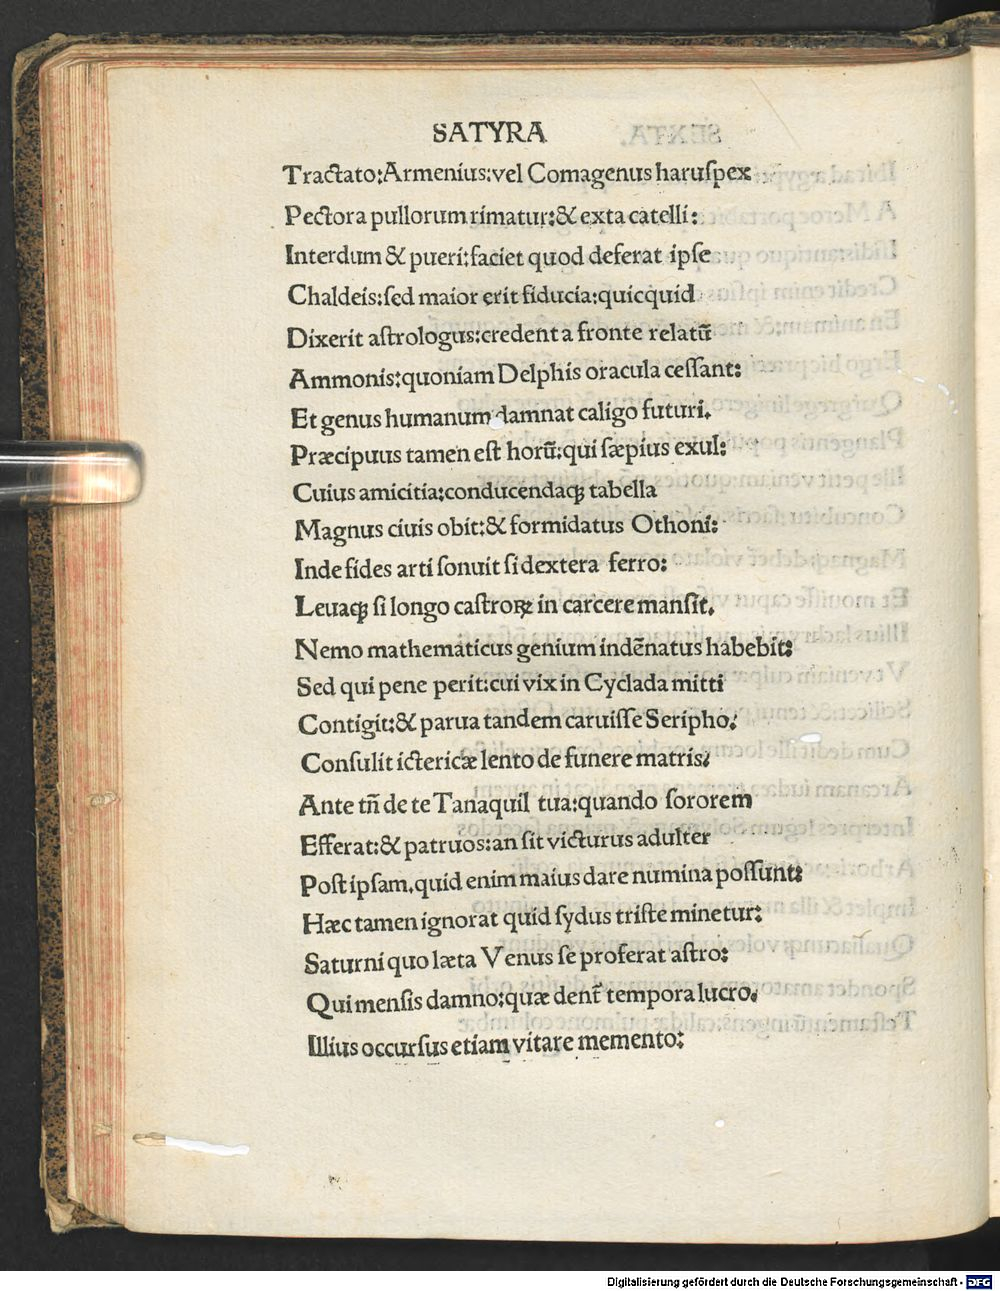 SATYRA
Tractato:Armenius:vel Comagenus haruſpex
Pectora pullorum rimatur:& exta catelli:
Interdum & pueri:faciet quod deferat ipſe
Chaldeis:ſed maior erit fiducia:quicquid
Dixerit aſtrologus:credent a fronte relatū
Ammonis:quoniam Delphis oracula ceſſant:
Et genus humanum damnat caligo futuri.
Præcipuus tamen eſt horū:qui ſæpius exul:
Cuius amicitia:conducendaqꝫ tabella
Magnus ciuis obit:& formidatus Othoni:
Inde fides arti ſonuit ſi dextera ferro:
Leuaqꝫ ſi longo caſtroꝝ in carcere manſit.
Nemo mathematicus genium indēnatus habebit:
Sed qui pene perit:cui vix in Cyclada mitti
Contigit:& parua tandem caruiſſe Seripho.
Conſulit ictericæ lento de funere matris:
Ante tn̄ de te Tanaquil tua:quando ſororem
Efferat:& patruos:an ſit victurus adulter
Poſt ipſam.quid enim maius dare numina poſſunt:
Hæc tamen ignorat quid ſydus triſte minetur:
Saturni quo læta Venus ſe proferat aſtro:
Qui menſis damno:quæ dent̄ tempora lucro.
Illius occurſus etiam vitare memento:
Digitalisierung gefördert durch die Deutsche Forschungsgemeinschaft - DFG